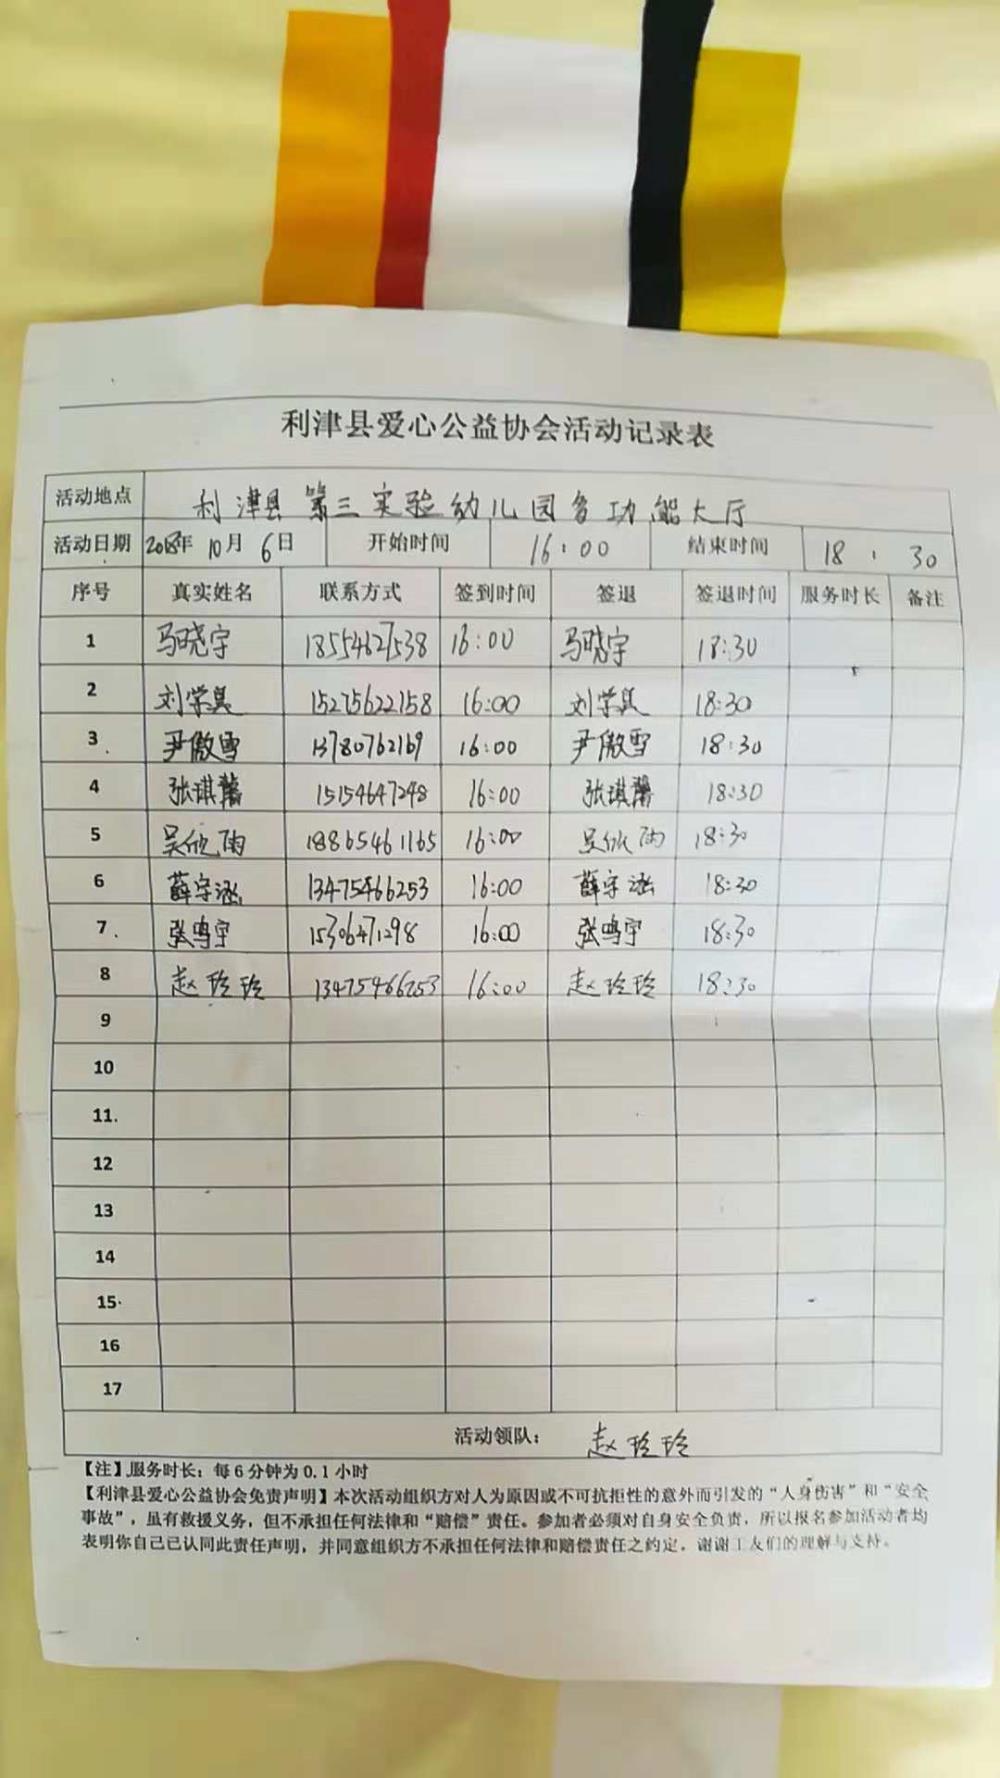 利津县爱心公益协会活动记录表
活动地点 利津县第三实验幼儿园多功能大厅
活动日期 2018年10月6日 开始时间 16:00 结束时间 18:30
序号 真实姓名 联系方式 签到时间 签退 签退时间 服务时长 备注
1 马晓宇 18554627538 16:00 马晓宇 18:30
2 刘学昊 15275622158 16:00 刘学昊 18:30
3 尹傲雪 13780762169 16:00 尹傲雪 18:30
4 张琪馨 15154647248 16:00 张琪馨 18:30
5 吴欣雨 18865461165 16:00 吴欣雨 18:30
6 薛宇涵 13475466253 16:00 薛宇涵 18:30
7 张鸣宇 15306471298 16:00 张鸣宇 18:30
8 赵玲玲 13475466253 16:00 赵玲玲 18:30
9
10
11
12
13
14
15
16
17
活动领队： 赵玲玲
【注】服务时长：每6分钟为0.1小时
【利津县爱心公益协会免责声明】本次活动组织方对人为原因或不可抗拒性的意外而引发的“人身伤害”和“安全
事故”，虽有救援义务，但不承担任何法律和“赔偿”责任。参加者必须对自身安全负责，所以报名参加活动者均
表明你自己已认同此责任声明，并同意组织方不承担任何法律和赔偿责任之约定。谢谢工友们的理解与支持。